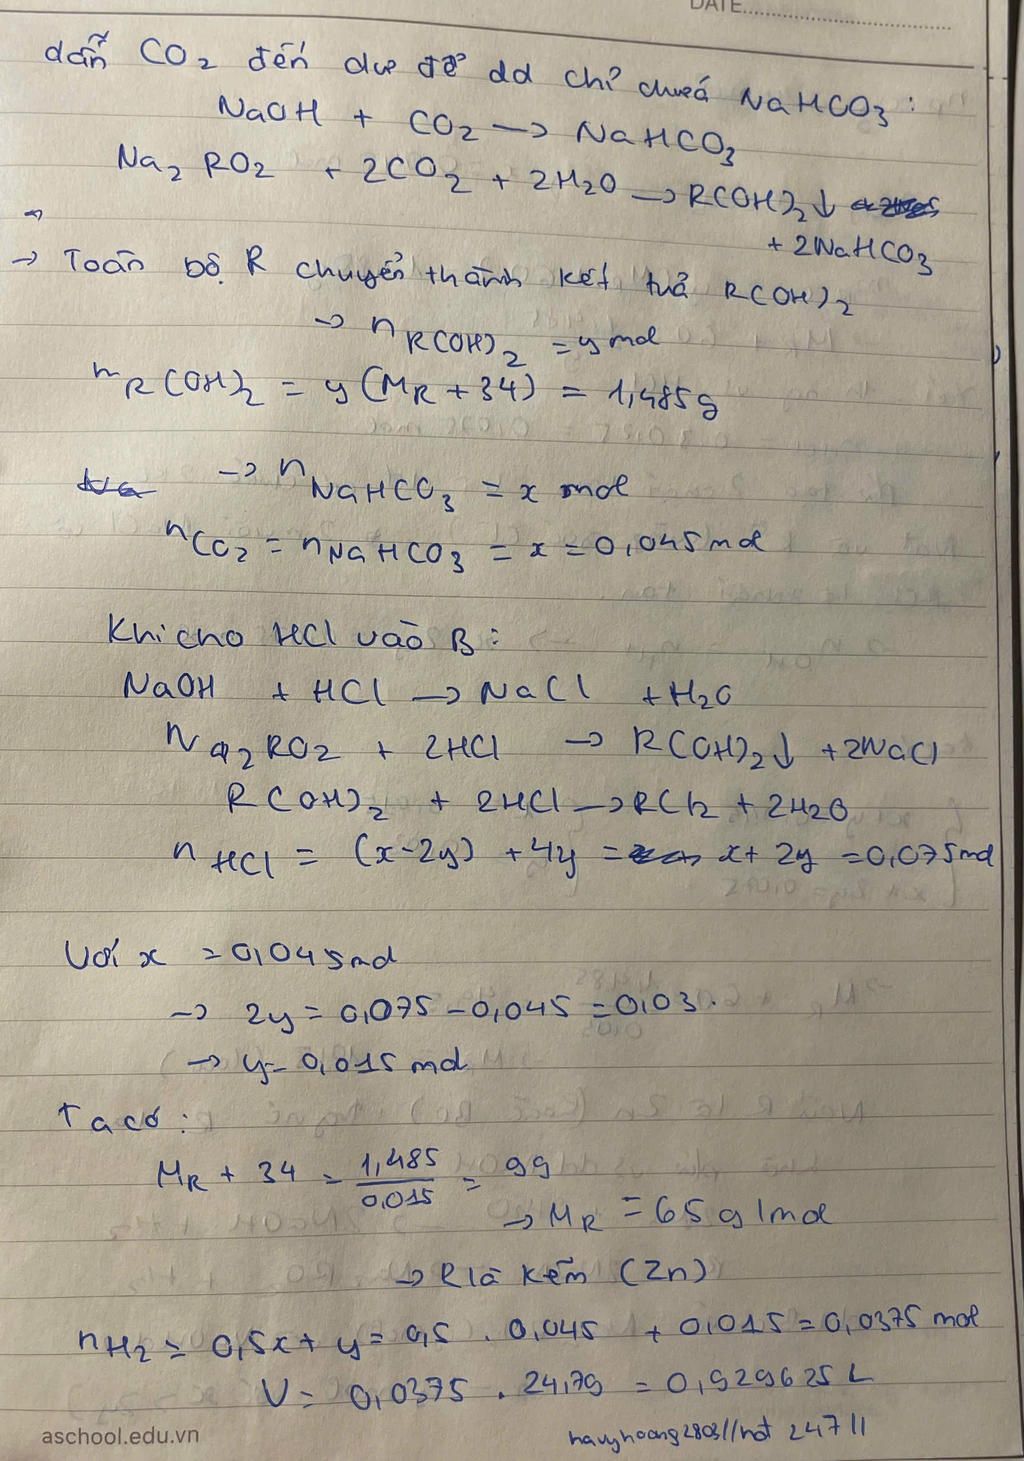 DATE
dẫn CO2 đến dư để dd chỉ chứa NaHCO3:
NaOH + CO2 → NaHCO3
Na2RO2 + 2CO2 + 2H2O → R(OH)2↓
+ 2NaHCO3
→ Toàn bộ R chuyển thành kết tủa R(OH)2
→ nR(OH)2 = y mol
mR(OH)2 = y(MR + 34) = 1,485g
→ nNaHCO3 = x mol
nCO2 = nNaHCO3 = x = 0,045 mol
Khi cho HCl vào B:
NaOH + HCl → NaCl + H2O
Na2RO2 + 2HCl → R(OH)2↓ + 2NaCl
R(OH)2 + 2HCl → RCl2 + 2H2O
nHCl = (x-2y) + 4y = x + 2y = 0,075 mol
Với x = 0,045 mol
→ 2y = 0,075 - 0,045 = 0,03.
→ y = 0,015 mol
Ta có:
MR + 34 = 1,485/0,015 = 99
→ MR = 65 g/mol
→ R là kẽm (Zn)
nH2 = 0,5x + y = 0,5 . 0,045 + 0,015 = 0,0375 mol
V = 0,0375 . 24,79 = 0,929625 L
aschool.edu.vn
havyhoang2803//hot 247//